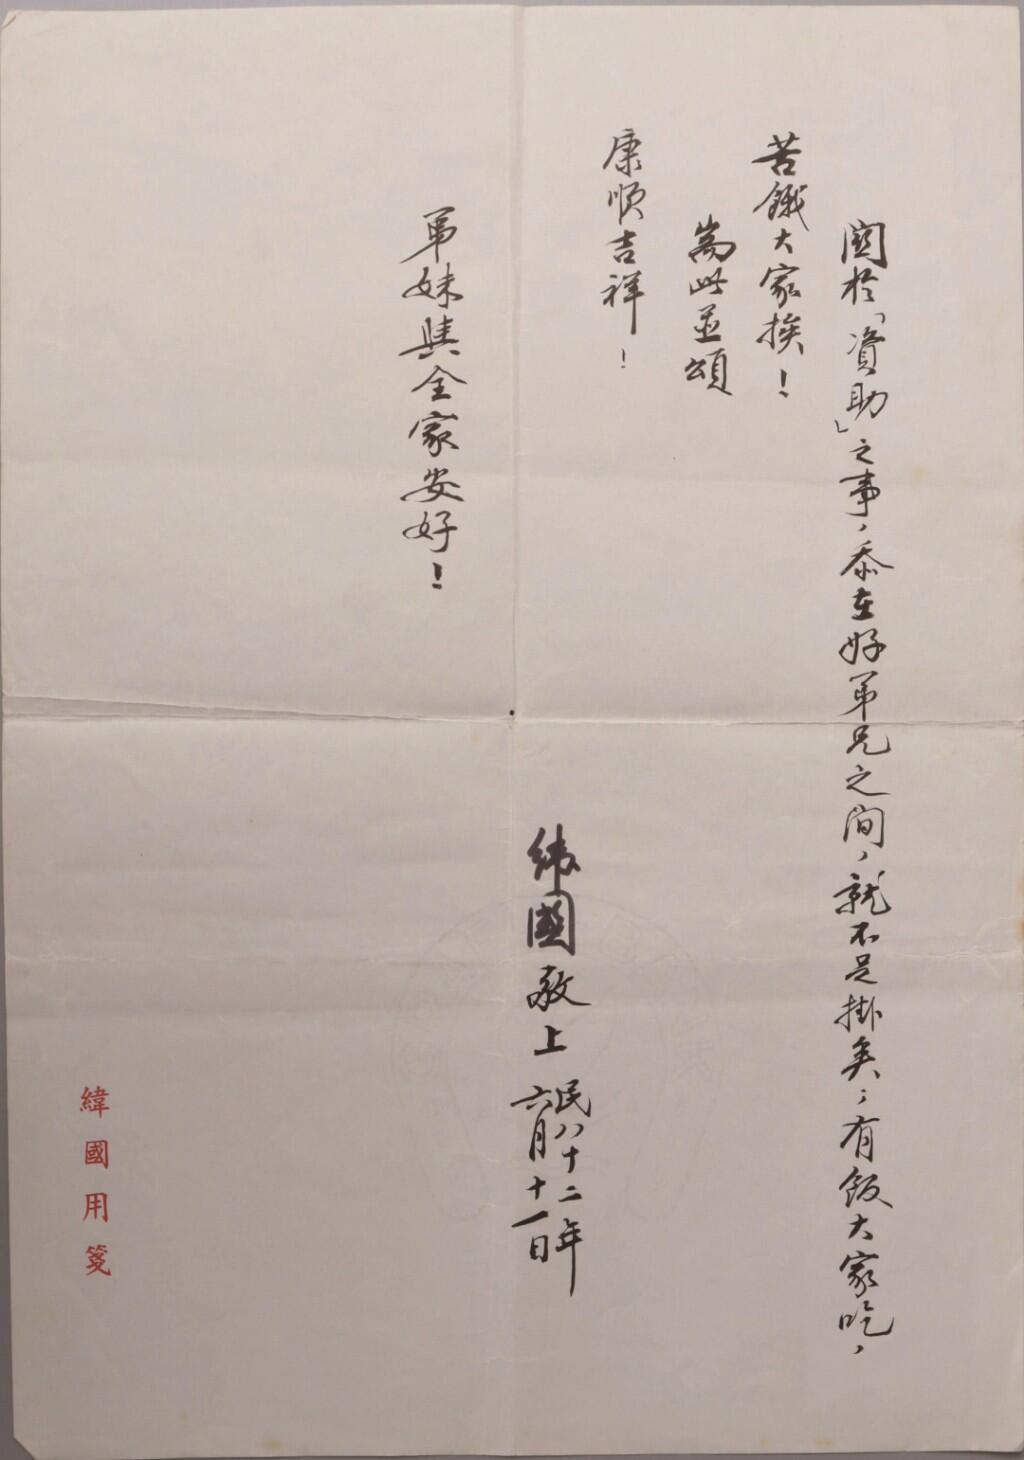 關於「資助」之事，忝在好弟兄之間，就不足掛矣；有飯大家吃，
苦餓大家挨！
耑此並頌
康順吉祥！
緯國敬上
民八十二年
六月十一日
弟妹與全家安好！
緯國用箋